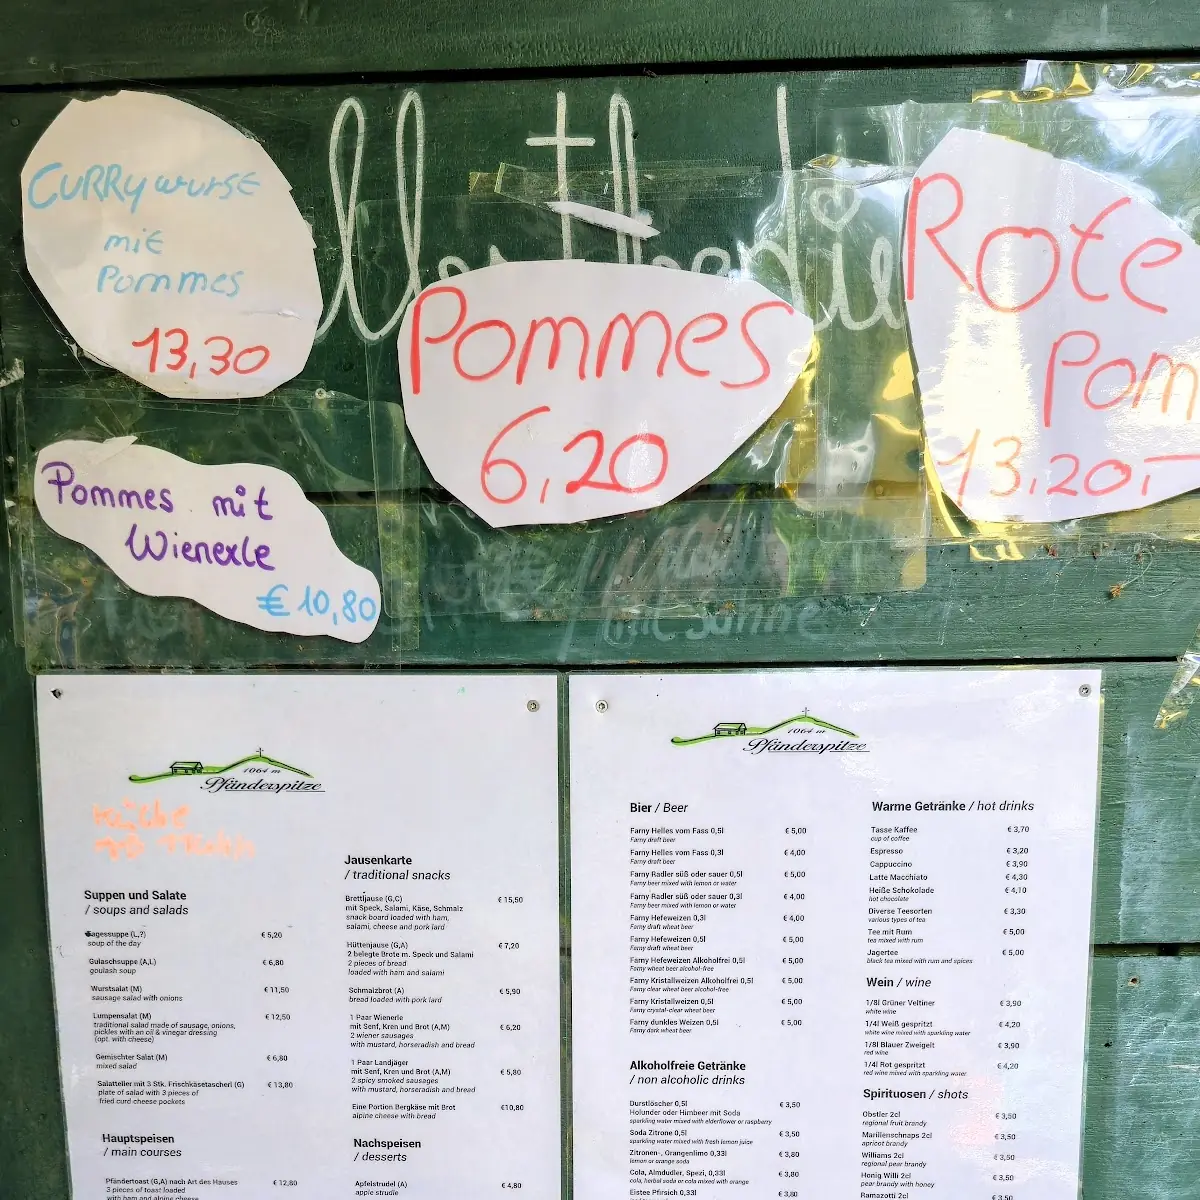 Currywurst
mit
Pommes
13,30
Pommes
6,20
Rote
Pom
13.20,-
Pommes mit
Wienerle
€ 10,80
mit Sahne
1064 m
Pfänderspitze
Küche
Suppen und Salate
/ soups and salads
Tagessuppe (L,?) € 5,20
soup of the day
Gulaschsuppe (A,L) € 6,80
goulash soup
Wurstsalat (M) € 11,50
sausage salad with onions
Lumpensalat (M) € 12,50
traditional salad made of sausage, onions,
pickles with an oil & vinegar dressing
(opt. with cheese)
Gemischter Salat (M) € 6,80
mixed salad
Salatteller mit 3 Stk. Frischkäsetascherl (G) € 13,80
plate of salad with 3 pieces of
fried curd cheese pockets
Hauptspeisen
/ main courses
Pfändertoast (G,A) nach Art des Hauses € 12,80
3 pieces of toast loaded
with ham and alpine cheese
Jausenkarte
/ traditional snacks
Brettljause (G,C) € 15,50
mit Speck, Salami, Käse, Schmalz
snack board loaded with ham,
salami, cheese and pork lard
Hüttenjause (G,A) € 7,20
2 belegte Brote m. Speck und Salami
2 pieces of bread
loaded with ham and salami
Schmalzbrot (A) € 5,90
bread loaded with pork lard
1 Paar Wienerle
mit Senf, Kren und Brot (A,M) € 6,20
2 wiener sausages
with mustard, horseradish and bread
1 Paar Landjäger
mit Senf, Kren und Brot (A,M) € 5,80
2 spicy smoked sausages
with mustard, horseradish and bread
Eine Portion Bergkäse mit Brot €10,80
alpine cheese with bread
Nachspeisen
/ desserts
Apfelstrudel (A) € 4,80
apple strudle
1064 m
Pfänderspitze
Bier / Beer
Farny Helles vom Fass 0,5l € 5,00
Farny draft beer
Farny Helles vom Fass 0,3l € 4,00
Farny draft beer
Farny Radler süß oder sauer 0,5l € 5,00
Farny beer mixed with lemon or water
Farny Radler süß oder sauer 0,3l € 4,00
Farny beer mixed with lemon or water
Farny Hefeweizen 0,3l € 4,00
Farny draft wheat beer
Farny Hefeweizen 0,5l € 5,00
Farny draft wheat beer
Farny Hefeweizen Alkoholfrei 0,5l € 5,00
Farny wheat beer alcohol-free
Farny Kristallweizen Alkoholfrei 0,5l € 5,00
Farny clear wheat beer alcohol-free
Farny Kristallweizen 0,5l € 5,00
Farny crystal-clear wheat beer
Farny dunkles Weizen 0,5l € 5,00
Farny dark wheat beer
Alkoholfreie Getränke
/ non alcoholic drinks
Durstlöscher 0,5l € 3,50
Holunder oder Himbeer mit Soda
sparkling water mixed with elderflower or raspberry
Soda Zitrone 0,5l € 3,50
sparkling water mixed with fresh lemon juice
Zitronen-, Orangenlimo 0,33l € 3,80
lemon or orange soda
Cola, Almdudler, Spezi, 0,33l € 3,80
cola, herbal soda or cola mixed with orange
Eistee Pfirsich 0,33l € 3,80
Warme Getränke / hot drinks
Tasse Kaffee € 3,70
cup of coffee
Espresso € 3,20
Cappuccino € 3,90
Latte Macchiato € 4,30
Heiße Schokolade € 4,10
hot chocolate
Diverse Teesorten € 3,30
various types of tea
Tee mit Rum € 5,00
tea mixed with rum
Jagertee € 5,00
black tea mixed with rum and spices
Wein / wine
1/8l Grüner Veltiner € 3,90
white wine
1/4l Weiß gespritzt € 4,20
white wine mixed with sparkling water
1/8l Blauer Zweigelt € 3,90
red wine
1/4l Rot gespritzt € 4,20
red wine mixed with sparkling water
Spirituosen / shots
Obstler 2cl € 3,50
regional fruit brandy
Marillenschnaps 2cl € 3,50
apricot brandy
Williams 2cl € 3,50
regional pear brandy
Honig Willi 2cl € 3,50
pear brandy with honey
Ramazotti 2cl € 3,50